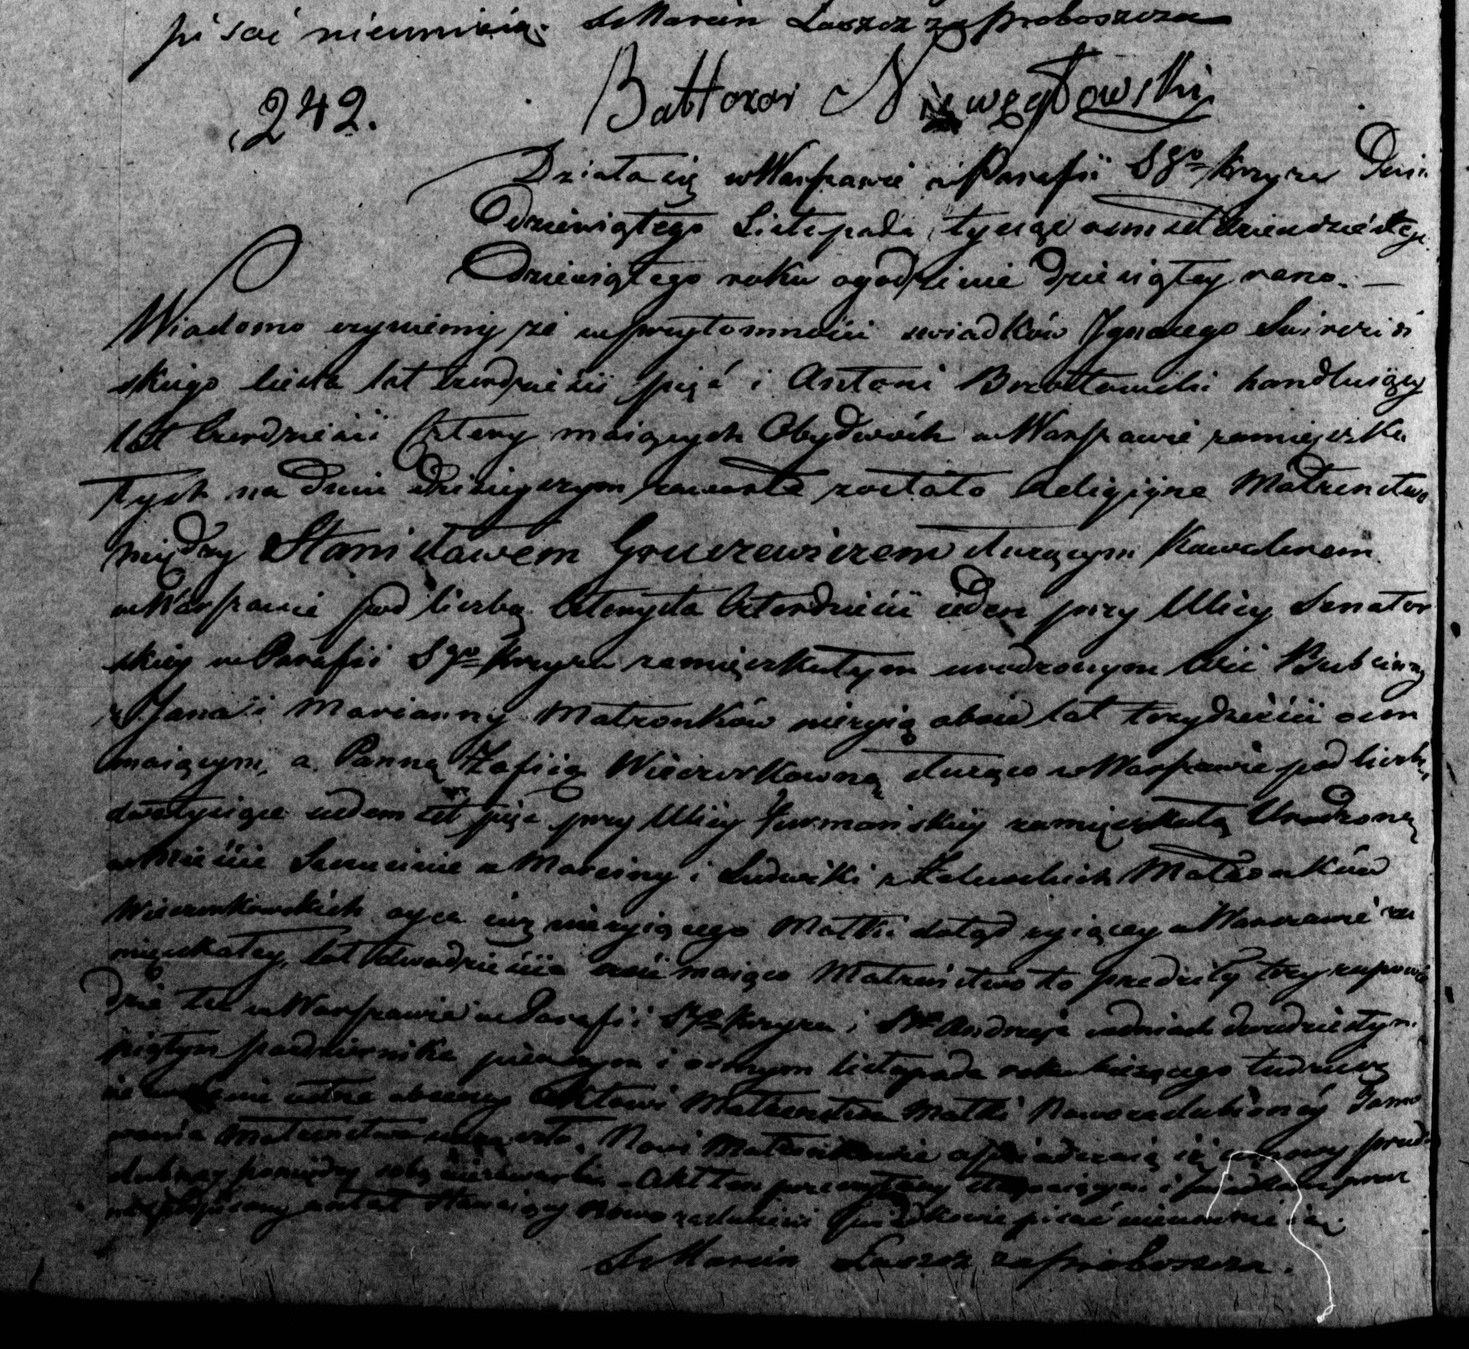 pisać nieumieią. X Marcin Łaszcz za proboszcza
242. Baltazar Niewzgłowski
Działo się w Warszawie w Parafii Sgo Krzyża Dnia
Dziewiątego Listopada tysiąc osmset dwudziestego
Dziewiątego roku o godzinie dziesiątey rano. —
Wiadomo czyniemy że w przytomności swiadków Ignacego
skiego lat czterdzieści pięć i Antoni handlujący
lat czterdzieści cztery maiących Obydwóch w Warszawie zamięszka
łych na dniu dzisieyszym zawarte zostało Religijne Małżeństwo
między Stanisławem Gruszewiczem służącym Kawalerem
w Warszawie pod liczbą czterysta czterdzieści ieden przy Ulicy Senator
skiey w Parafii Sgo Krzyża zamięszkałym urodzonym we Wsi
z Jana i Marianny Małżonków nieżyią obóie lat trzydzieści osm
maiącym, a Panną Zofiią Wieczorkowną służąco w Warszawie pod liczbą
dwatysiące siedem set pięć przy Ulicy Furmańskiey zamięszkałą Urodzoną
w Mieście z Marciny i Ludwiki z Małżonków
Wieczorkowskich oyca iuż nieżyiącego Matki dotąd żyiącey w Warszawie za
mięszkałey, lat dwadzieścia maiąco Małżeństwo to predziły trzy zapowie
dzie tu w Warszawie w Parafii Sgo Krzyża i Sgo Andrzeja w dniach dwudziestym
piątym pazdziernika pierwszym i osmym listopada roku bieżącego tudzież
ustne obecney Aktowi Małżeństwa Matki Nowozaślubioney Tamo
wanie Małżeństwa nie zaszło. Nowi Małżonkowie oświadczaią iż umowy przed
ślubney pomiędzy sobą niezawarli. Akt ten przeczytany stawaiącym i przez
został Stawaiący Nowozaślubieni i świadkowie pisać nieumieią.
X Marcin Łaszcz za proboszcza.